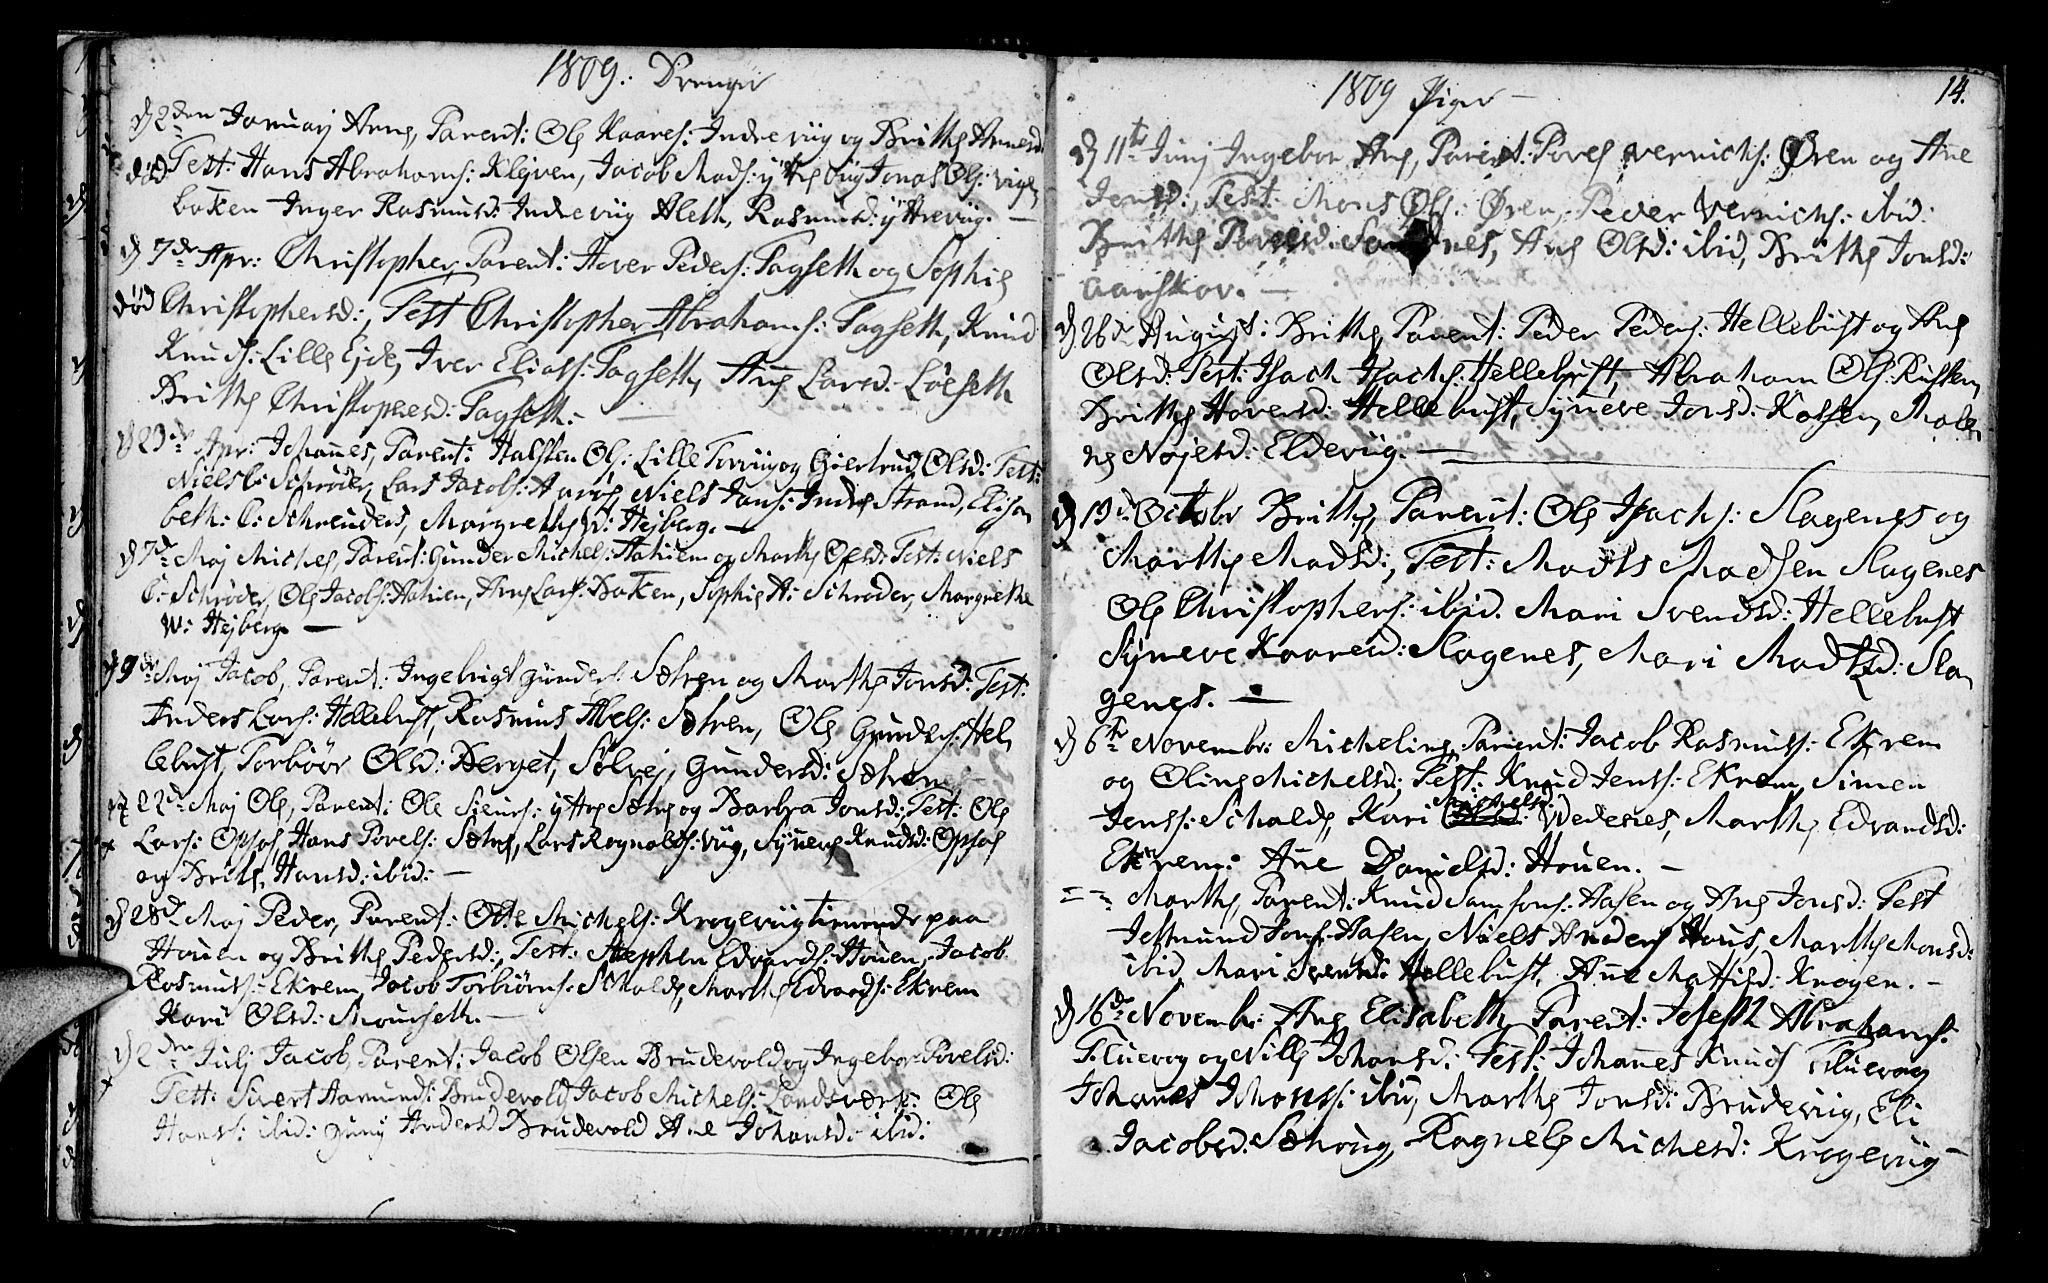 1809. Drenge
D 2den Januarj Arne, Parent: Ole Kaares: Indreviig og Brithe Arnesd:
død Test: Hans Abrahams: Klejven, Jacob Mads: ÿtreviig Jonas Ols: Vige
boken Inger Rasmusd: Indreviig Aleth, Rasmusd: ÿttreviig. —
D 7de Apr: Christopher Parent: Hover Peders: Tagseth og Sophie
død Christophersd:, Test Christopher Abrahams: Tagseth, Knud
Knuds: Lille Ejde, Iver Elias: Tagseth, Ane Larsd: Løeseth
Brithe Christophersd: Tagseth. —
D 23de Apr: Johannes, Parent: Halsten Ols: Lille Torviig og Giertrud Olsd: Test:
Niels C: Schrøder, Lars Jacobs: Aarøe, Niels Jans: Indre Strand, Elisa
beth: C: Schreuders, Margrethe W: Hejberg. —
D 7de Maj Michel, Parent: Gunder Michels: Hahiem og Marthe Olsd: Test: Niels
C: Schrøder, Ole Jacobs: Hahiem, Arne Lars: Bakken, Sophie H: Schrøder, Margrethe
W: Hejberg. —
D 9de Maj Jacob, Parent: Ingebrigt Gunders: Sætren og Marthe Jonsd: Test:
Anders Lars: Hellebust, Rasmus Abels: Sætren, Ole Gunders: Hel
lebust, Torbiør Olsd: Berget, Sølvej Gundersd: Sætren. —
D 22de Maj Ole, Parent: Ole Siurs: ÿttre Sætre og Barbra Jonsd: Test: Ole
+ Lars: Opsal, Hans Povels: Sætre, Lars Rognalds: Viig, Sÿneve Knudsd: Opsal
og Brite Hansd: ibid: —
D 28de Maj Peder, Parent: Otte Michels: Krogeviig tienende paa
Houen og Brithe Pedersd:, Test: Stephen Edvards: Houen, Jacob
Rasmus: Ekrem, Jacob Torbiørns: Skolde, Marthe Edvards: Ekrem
Kari Olsd: Mourseth. —
D 2den Julj Jacob, Parent: Jacob Olsen Brudevold og Ingebor Povelsd:
+ Test: Sivert Hamunds: Brudevold Jacob Michels: Landsværk: Ole
Hans: ibid: Gunj Andersd Brudevold Ane Johansd: ibid:
14.
1809 Piger —
D 11te Junj Ingebor Ane, Parent: Povel Vernichs: Øren og Ane
Jonsd:, Test: Mons Ols: Øren, Peder Vernichs: ibid:
Brithe Povelsd: Sandnes, Ane Olsd: ibid, Brithe Jonsd:
Aarskov. —
D 26de August: Brithe, Parent: Peder Peders: Hellebust og Ane
Olsd: Test: Isach Isachs: Hellebust, Abraham Ols: Risten,
Brithe Hoversd: Hellebust, Sÿneve Jonsd: Kolsen, Male
ne Nøjesd: Eldeviig. —
D 19de October Brithe, Parent: Ole Isachs: Slagenes og
Marthe Madsd:, Test: Madts Madsen Slagenes
Ole Christophers: ibid. Mari Svendsd: Hellebust
Sÿneve Kaaresd: Slagenes, Mari Madtsd: Sla
genes. —
D 6te Novembr: Micheline, Parent: Jacob Rasmus: Ekrem
og Oline Michelsd:, Test: Knud Jens: Ekrem, Simen
Jens: Schalde, Kari Michelsd: Wedenes, Marthe Edvardsd:
Ekrem: Ane Danielsd: Houen. —
= = Marthe, Parent: Knud Samsons: Aasen og Ane Jonsd: Test
Jetmund Jons: Aasen, Niels Anders Hous, Marthe Monsd:
ibid, Mari Svensd: Hellebust, Ane Mattisd: Krogen. —
D 16de Novembr: Ane Elisabeth, Parent: Joseph Abrahams:
Fluevog og Nille Johansd: Test: Johannes Knuds Fluevog
Johanes Johans: ibid, Marthe Jonsd: Brudeviig, Eli
Jacobsd: Sætviig, Ragnele Michelsd: Krogeviig —